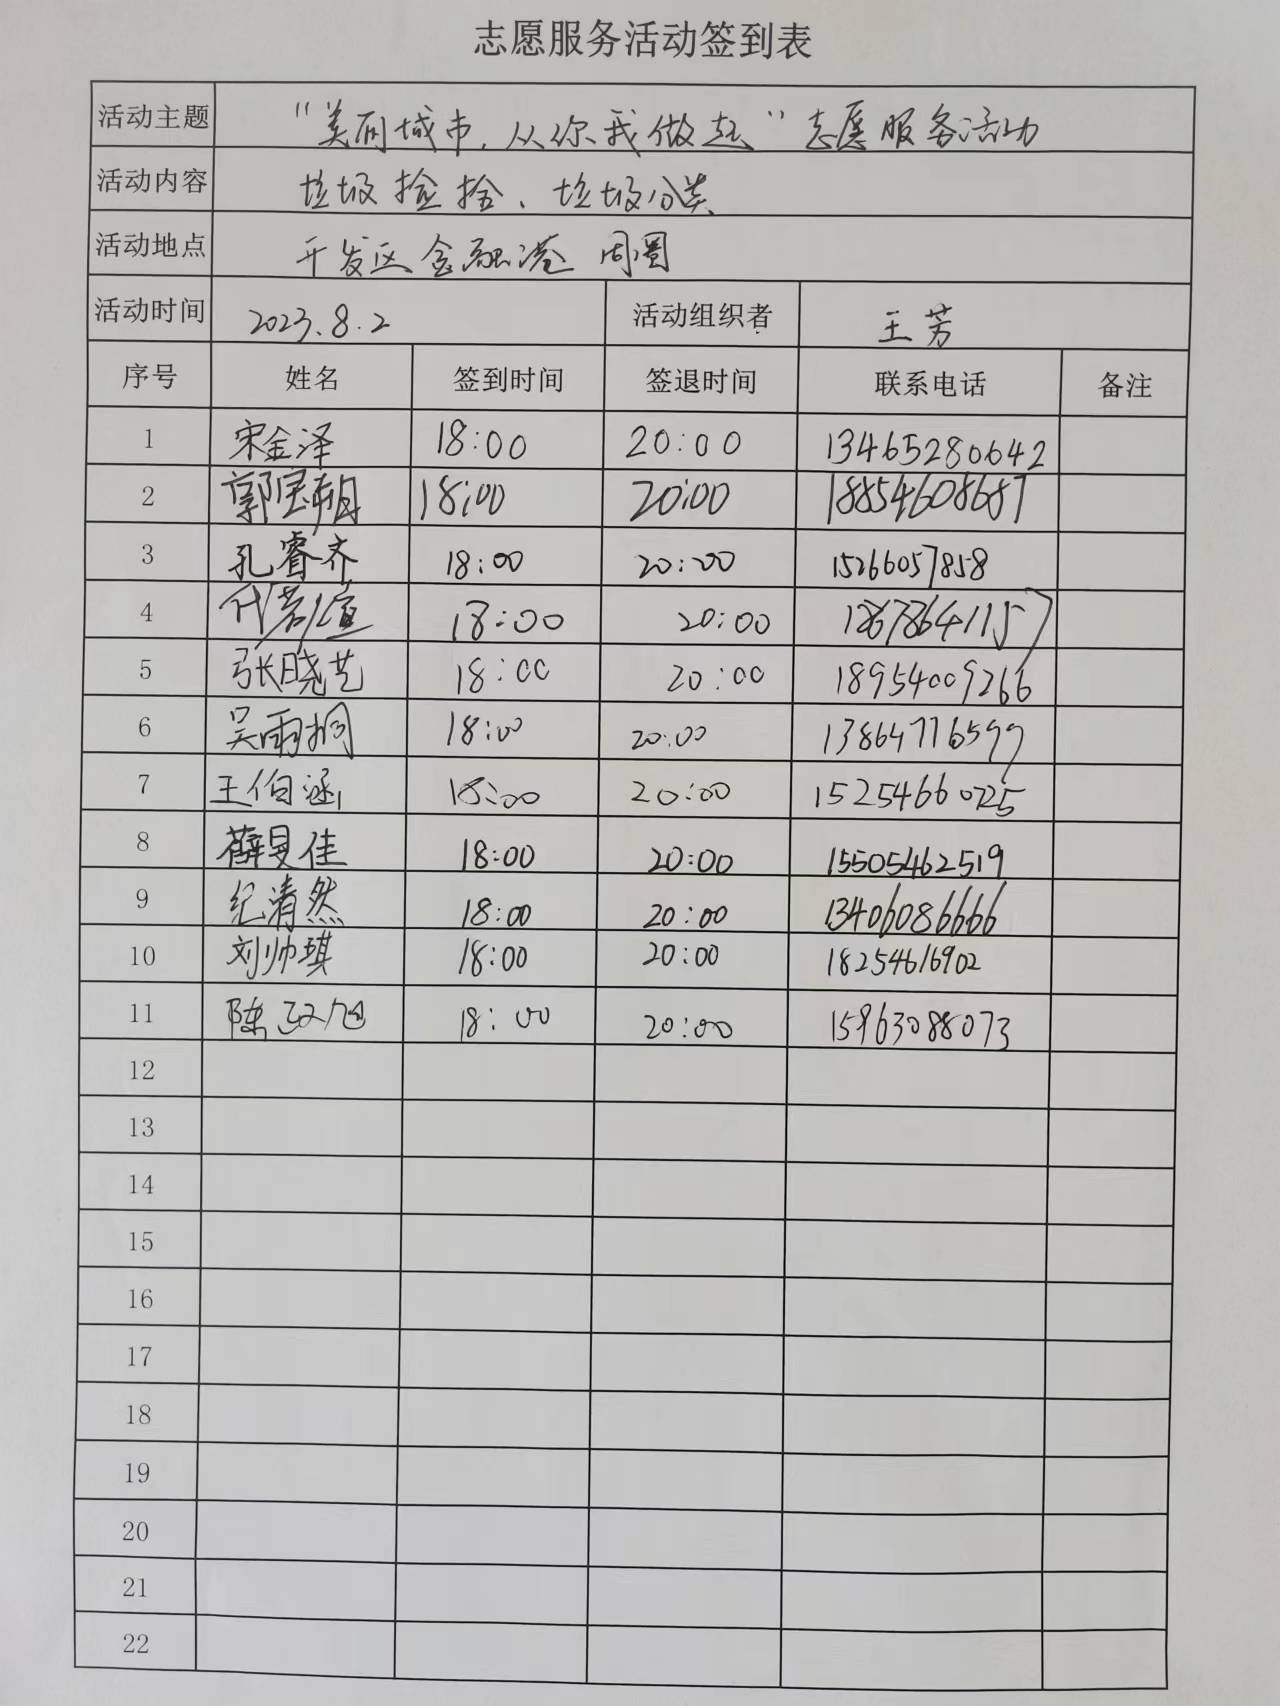 志愿服务活动签到表
活动主题 “美丽城市,从你我做起”志愿服务活动
活动内容 垃圾捡拾、垃圾分类
活动地点 开发区金融港 周围
活动时间 2023.8.2 活动组织者 王芳
序号 姓名 签到时间 签退时间 联系电话 备注
1 宋金泽 18:00 20:00 13465280642
2 郭宝朝 18:00 20:00 18854608687
3 孔睿齐 18:00 20:00 15266057858
4 18:00 20:00
5 张晓艺 18:00 20:00 18954009266
6 吴雨桐 18:00 20:00 13864771659
7 王伯涵 18:00 20:00 15254660725
8 薛旻佳 18:00 20:00 15505462519
9 纪清然 18:00 20:00 13406086666
10 刘帅琪 18:00 20:00 18254616902
11 陈政旭 18:00 20:00 15963088073
12
13
14
15
16
17
18
19
20
21
22